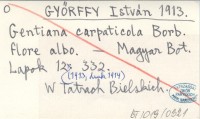 O GYÖRFFY István 1913.
Gentiana carpaticola Borb.
flore albo. — Magyar Bot.
Lapok 12: 332.
(1913, druk 1914)
W Tatrach Bielskich.
BJ 1019/0321